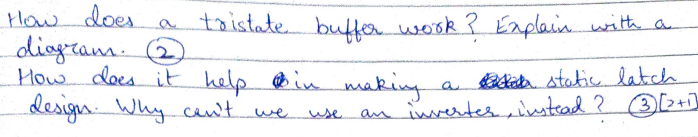 How does a tristate buffer work? Explain with a
diagram. (2)
How does it help in making a static latch
design. Why can't we use an inverter, instead? (3) [2+1]